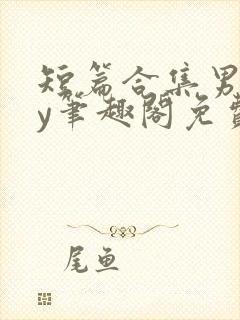 短篇合集男
y笔趣阁免费
尾鱼